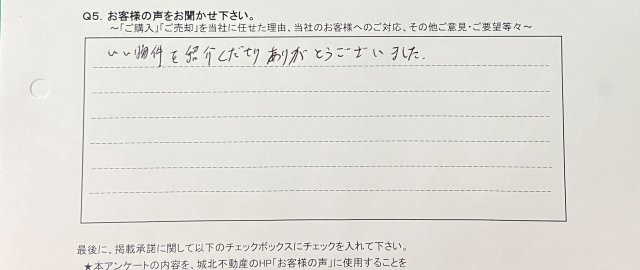 Q5. お客様の声をお聞かせ下さい。
～「ご購入」「ご売却」を当社に任せた理由、当社のお客様へのご対応、その他ご意見・ご要望等々～
いい物件を紹介しださり ありがとうございました.
最後に、掲載承諾に関して以下のチェックボックスにチェックを入れて下さい。
★本アンケートの内容を、城北不動産のHP「お客様の声」に使用することを